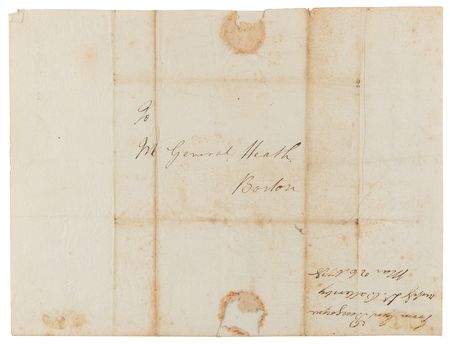 To
M General Heath
Boston
From Gen Burgoyne
Mar 26. 1778